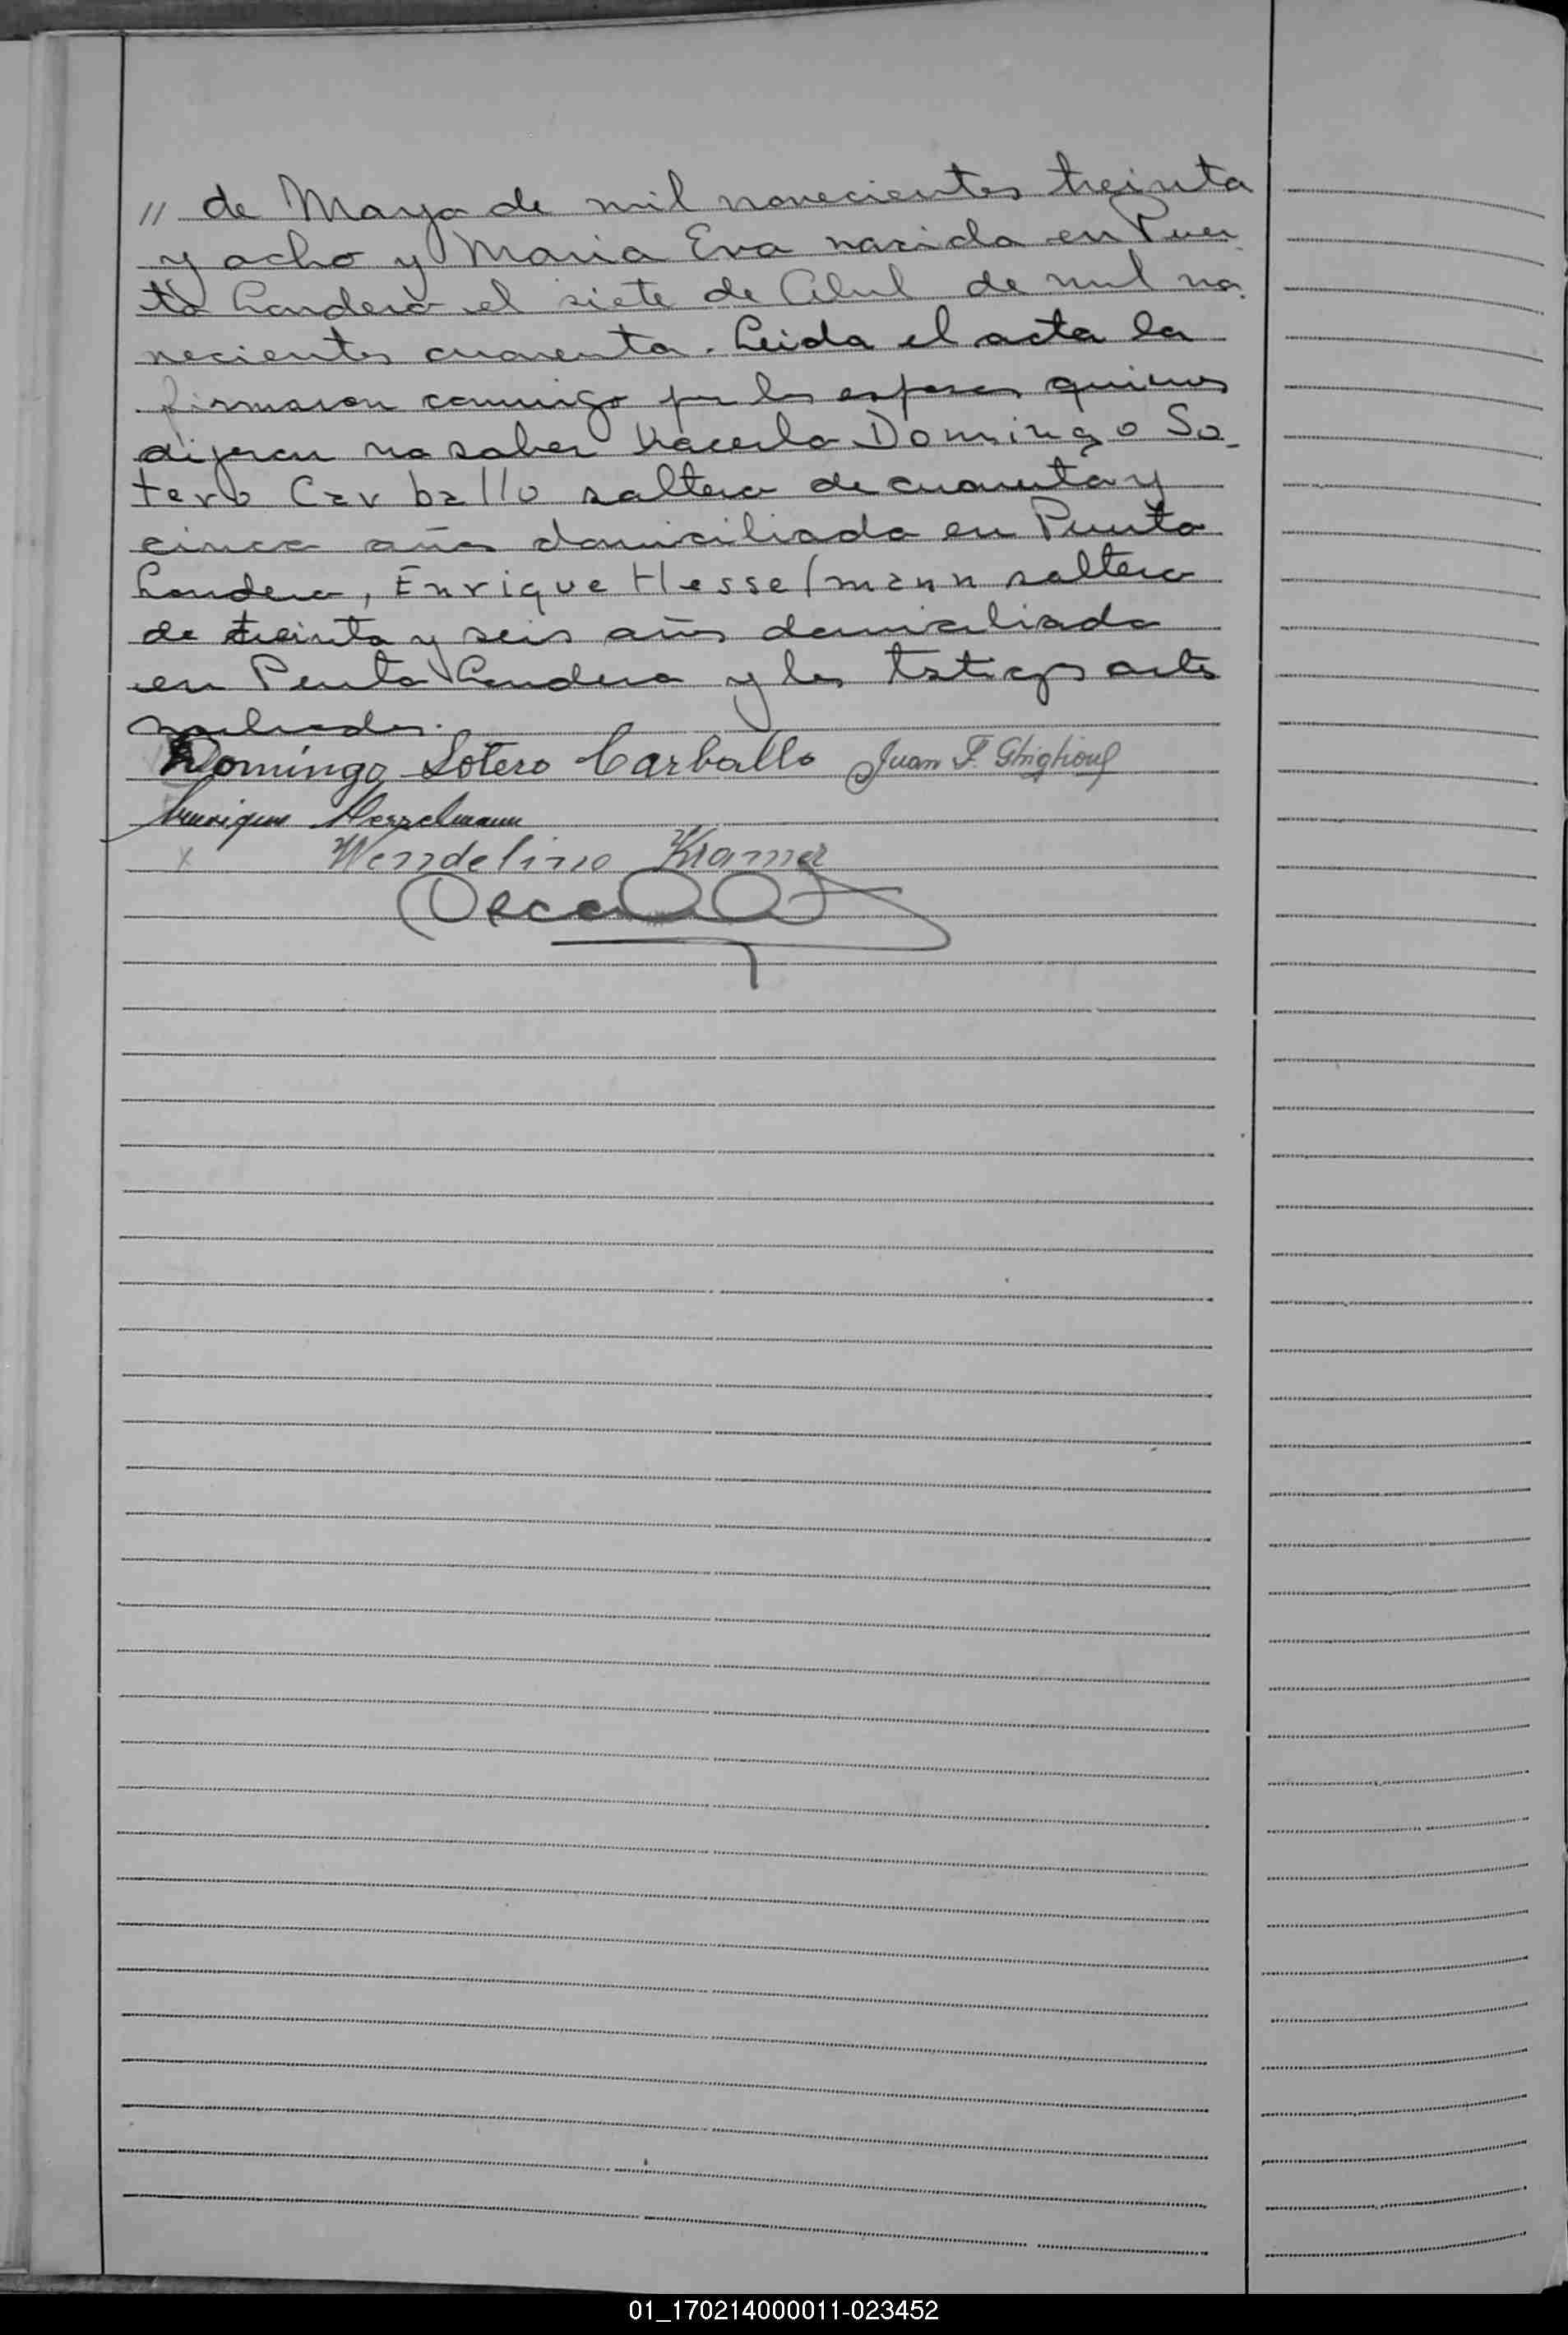 // de Mayo de mil novecientos treinta
y ocho y Maria Eva nacida en Puer
to Londero el siete de Abril de mil no
vecientos cuarenta. Leida el acta la
firmaron conmigo por los esposos quienes
dijeron no saber hacerlo Domingo So_
tero Carballo soltero de cuarenta y
cinco años domiciliado en Puerto
Londero, Enrique Hesselmann soltero
de treinta y seis años domiciliado
en Puerto Londero y los testigos antes
nombrados.
Domingo Sotero Carballo Juan F. Ghiglione
Enrique Hesselmann
x Wendelino Kramer
01_170214000011-023452